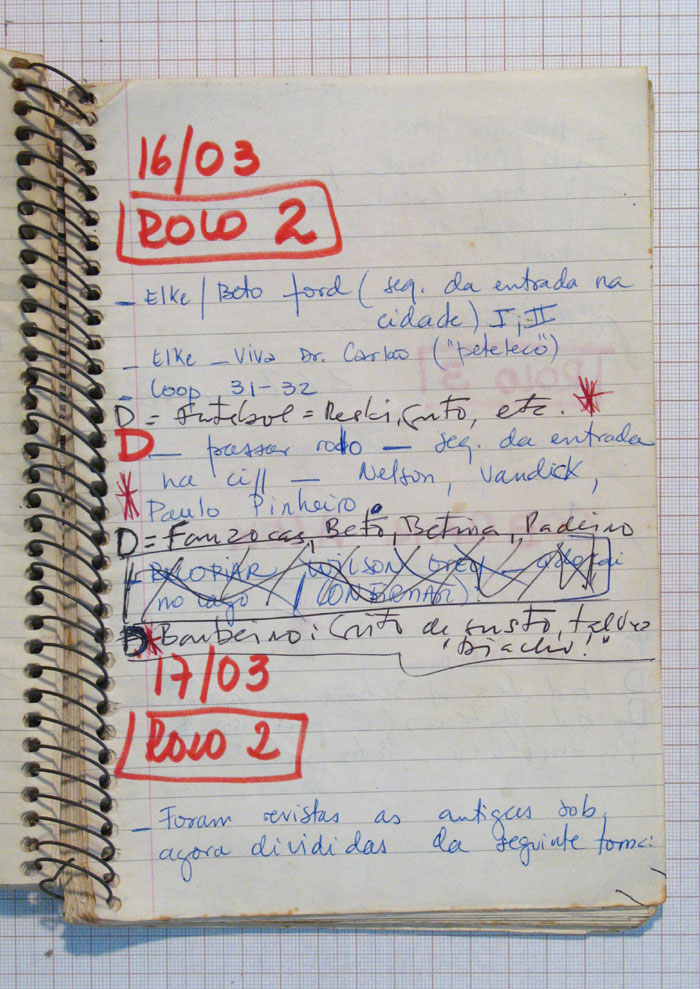 16/03
ROLO 2
- Elke / Beto ford ( seq. da entrada na
cidade) I, II
- Elke - Viva Dr. Carlão ("peteleco")
- Loop 31-32
D = Futebol = Reski, grito, etc. *
D - passar rolo - seq. da entrada
na ci// - Nelson, Vandick,
* Paulo Pinheiro.
D = Fanzocas, Beto, Betina, Padeiro
WILSON GREY
no (CONFIRMAR).
D* Barbeiro: Grito de susto, talvez
"Diacho!"
17/03
ROLO 2
- Foram revistas as antigas sob,
agora divididas da seguinte forma: